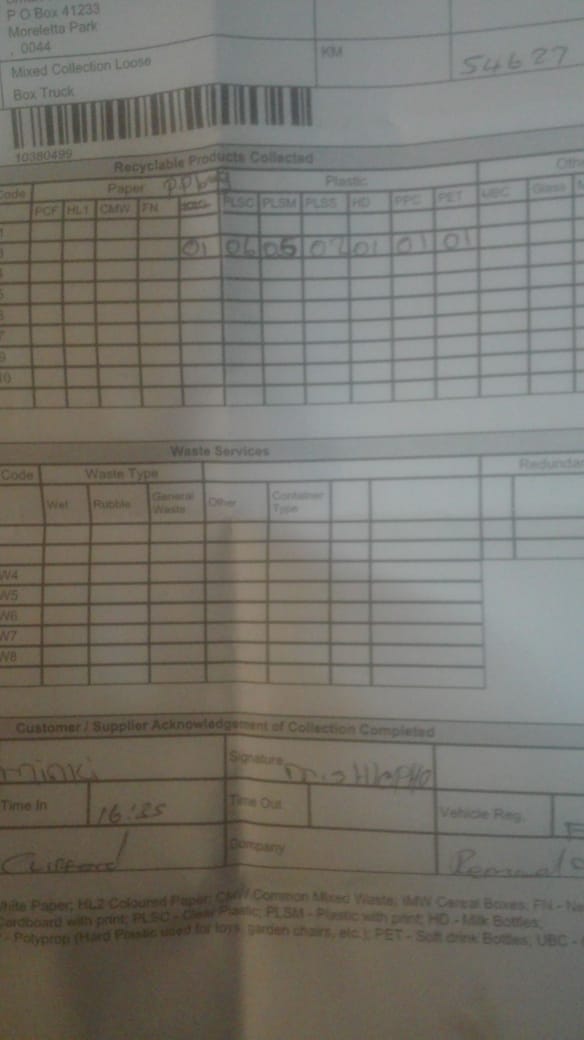 P O Box 41233
Moreletta Park
, 0044
KM 54627
Mixed Collection Loose
Box Truck
10380499
Recyclable Products Collected
Code Paper Plastic Othe
PCF HL1 CMW FN PLSC PLSM PLSS HD PPC PET UBC Glass
01 06 05 07 01 01 01
9
10
Waste Services
Code Waste Type Redundan
Wet Rubble General Waste Other Container Type
W4
W5
W6
W7
W8
Customer / Supplier Acknowledgement of Collection Completed
Signature
Time In 16:25 Time Out Vehicle Reg.
Clifford Company
White Paper; HL2 Coloured Paper; CMW Common Mixed Waste; IMW Cereal Boxes; FN - Ne
Cardboard with print; PLSC - Clear Plastic; PLSM - Plastic with print; HD - Milk Bottles;
- Polyprop (Hard Plastic used for toys, garden chairs, etc.); PET - Soft drink Bottles; UBC -